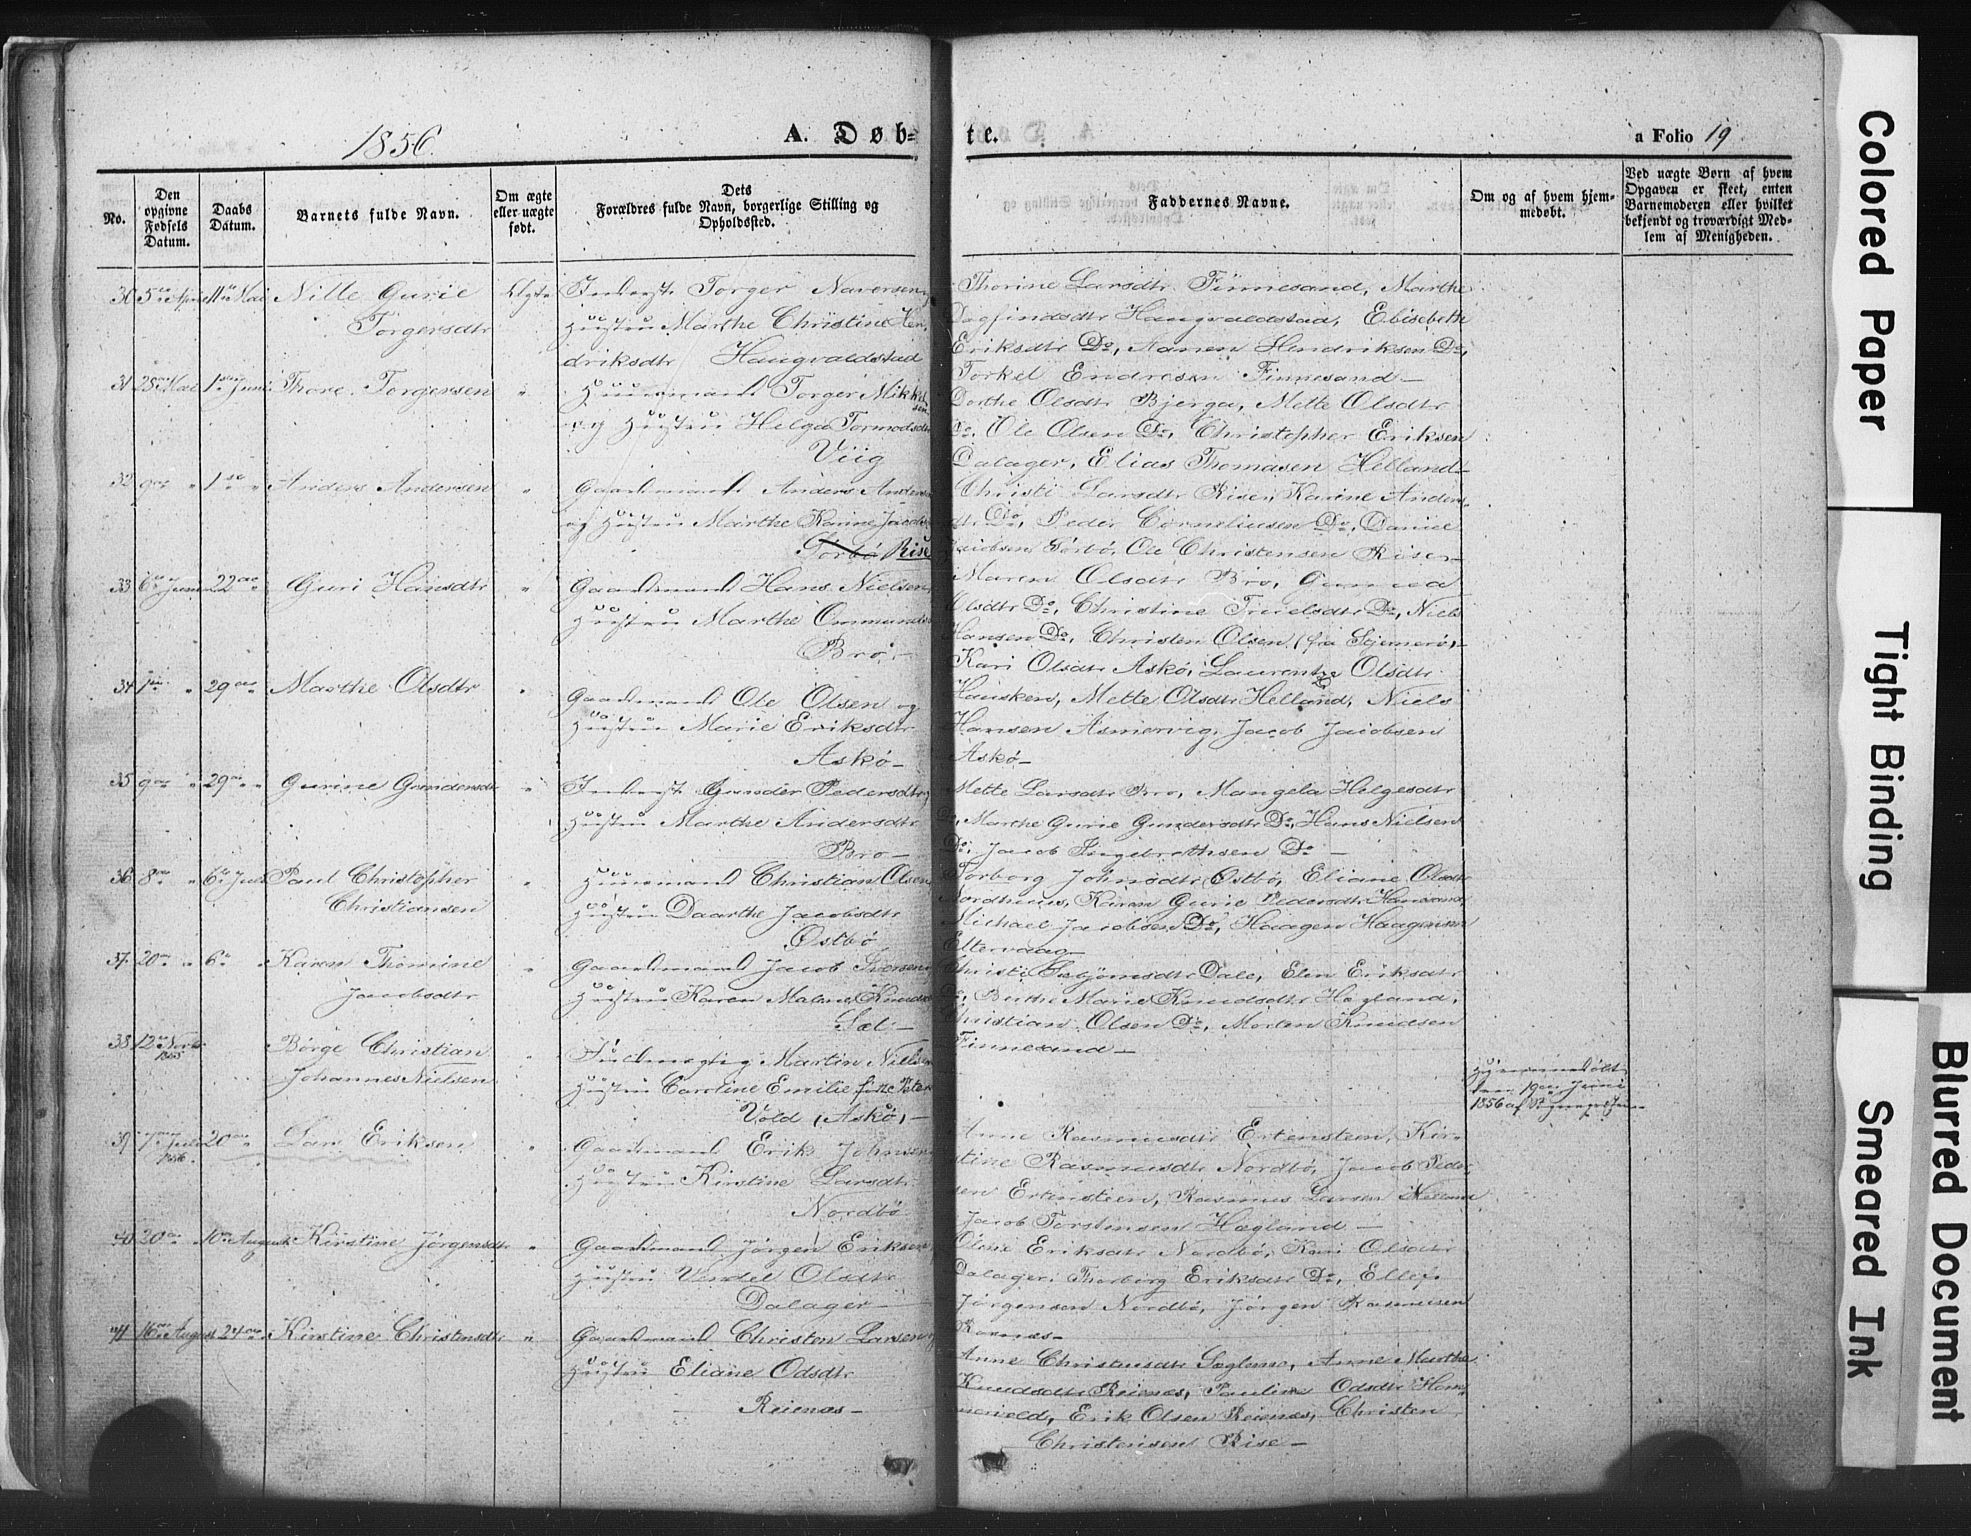 1856
A. Døb-
te.
a Folio 19
No.
Den opgivne Fødsels Datum.
Daabs Datum.
Barnets fulde Navn.
Om ægte eller uægte født.
Dets Forældres fulde Navn, borgerlige Stilling og Opholdssted.
Faddernes Navne.
Om og af hvem hjemmedøbt.
Ved uægte Børn af hvem
Opgaven er skeet, enten
Barnemoderen eller hvilket
bekjendt og troværdigt Med-
lem af Menigheden.
30 5te April 11te Mai Nille Gurie Ægte Inderst Torger
Torgersdtr Hustru Marthe Christine Hen
driksdtr Haugvaldstad
Thorine Larsdtr Finnesand, Marthe
Dagfindsdtr Haugvaldstad, Elisebeth
Eriksdtr Do, Aanen Hendriksen Do,
Torkel Endresen Finnesand —
31 25 Mai 1ste Juni Thore Torgersen " Huusmand Torger Mikkel
sen
og Hustru Helga Tormodsdtr
Viig
Dorthe Olsdtr Bjerga, Mette Olsdtr
Do, Ole Olsen Do, Christopher Eriksen
Dalager, Elias Thomasen Helland —
32 " 1ste " Anders Andersen " Gaardmand Anders Anders
og Hustru Marthe Karine Jacobs
Sørbø Rise
Christi Larsdtr Riser, Karine Anders
dtr Do, Peder Corneliusen Do, Daniel
Jacobsen Sørbø, Ole Christensen Riser —
33 6te Juni 22de " Guri Hansdtr " Gaardmand Hans Nielsen
Hustru Marthe Ommunds
Bro —
Maren Olsdtr Bro,
Olsdtr Do, Christine Truelsdtr Do, Niels
Hansen Do, Christen Olsen (fra Stjernerø) —
34 1ste " 29de " Marthe Olsdtr " Gaardmand Ole Olsen og
Hustru Marie Eriksdtr
Askø —
Kari Olsdtr Askø, Laurentze Olsdtr
Hausken, Mette Olsdtr Helland, Niels
Hansen Asmervig, Jacob Jacobsen
Askø —
35 9de " 29de " Gurine Gundersdtr " Inderst Gunder Pedersdtr
Hustru Marthe Andersdtr
Bro —
Mette Larsdtr Bro, Mangela Helgesdtr
Do, Marthe Gurie Gundersdtr Do, Hans Nielsen
Do, Jacob Ingebrethsen Do —
36 8de " 6te Juli Paul Christopher " Huusmand Christian Olsen
Christiansen Hustru Daarthe Jacobsdtr
Østbø
Torborg Johnsdtr Østbø, Eliane Olsdtr
Nordhuus, Karen Gurie Pedersdtr
Michael Jacobsen Do, Haagen Haagensen
Eltervaag —
37 20de " 6te " Karen Thomine " Gaardmand Jacob Iversen
Jacobsdtr Hustru Karen Malene Knuds
Sæl —
Christi Sæbjørnsdtr Dale, Elen Eriksdtr
Do, Berthe Marie Knudsdtr Hægland,
Christian Olsen Do, Morten Knudsen
Finnesand —
38 12te Novbr 1855 Børge Christian " Martin Nielsen
Johannes Nielsen Hustru Caroline Emilie
Vold (Askø) —
Hjemmedøbt
den 19de Juni
1856 af Sognepresten
39 7de Juli 1856 20de " Lars Eriksen " Gaardmand Erik Johnsen
Hustru Kirstine Larsdtr
Nordbø
Anne Rasmusdtr Ertensteen, Kir-
stine Rasmusdtr Nordbø, Jacob Peder
sen Ertensteen, Rasmus Larsen Helland
Jacob Torstensen Hægland —
40 20de " 10de August Kirstine Jørgensdtr " Gaardmand Jørgen Eriksen
Hustru Vendel Olsdtr
Dalager —
Oline Eriksdtr Nordbø, Kari Olsdtr
Dalager, Thorborg Eriksdtr Do, Ellef
Jørgensen Nordbø, Jørgen Rasmusen
41 16de August 24de " Kirstine Christensdtr " Gaardmand Christen Larsen og
Hustru Eliane Odsdtr
Reienæs —
Anne Christensdtr, Anne Marthe
Knudsdtr Reienæs, Pauline Odsdtr Hom
Erik Olsen Reienæs, Christen
Christensen Rise —
Colored Paper
Tight Binding
Blurred Document
Smeared Ink